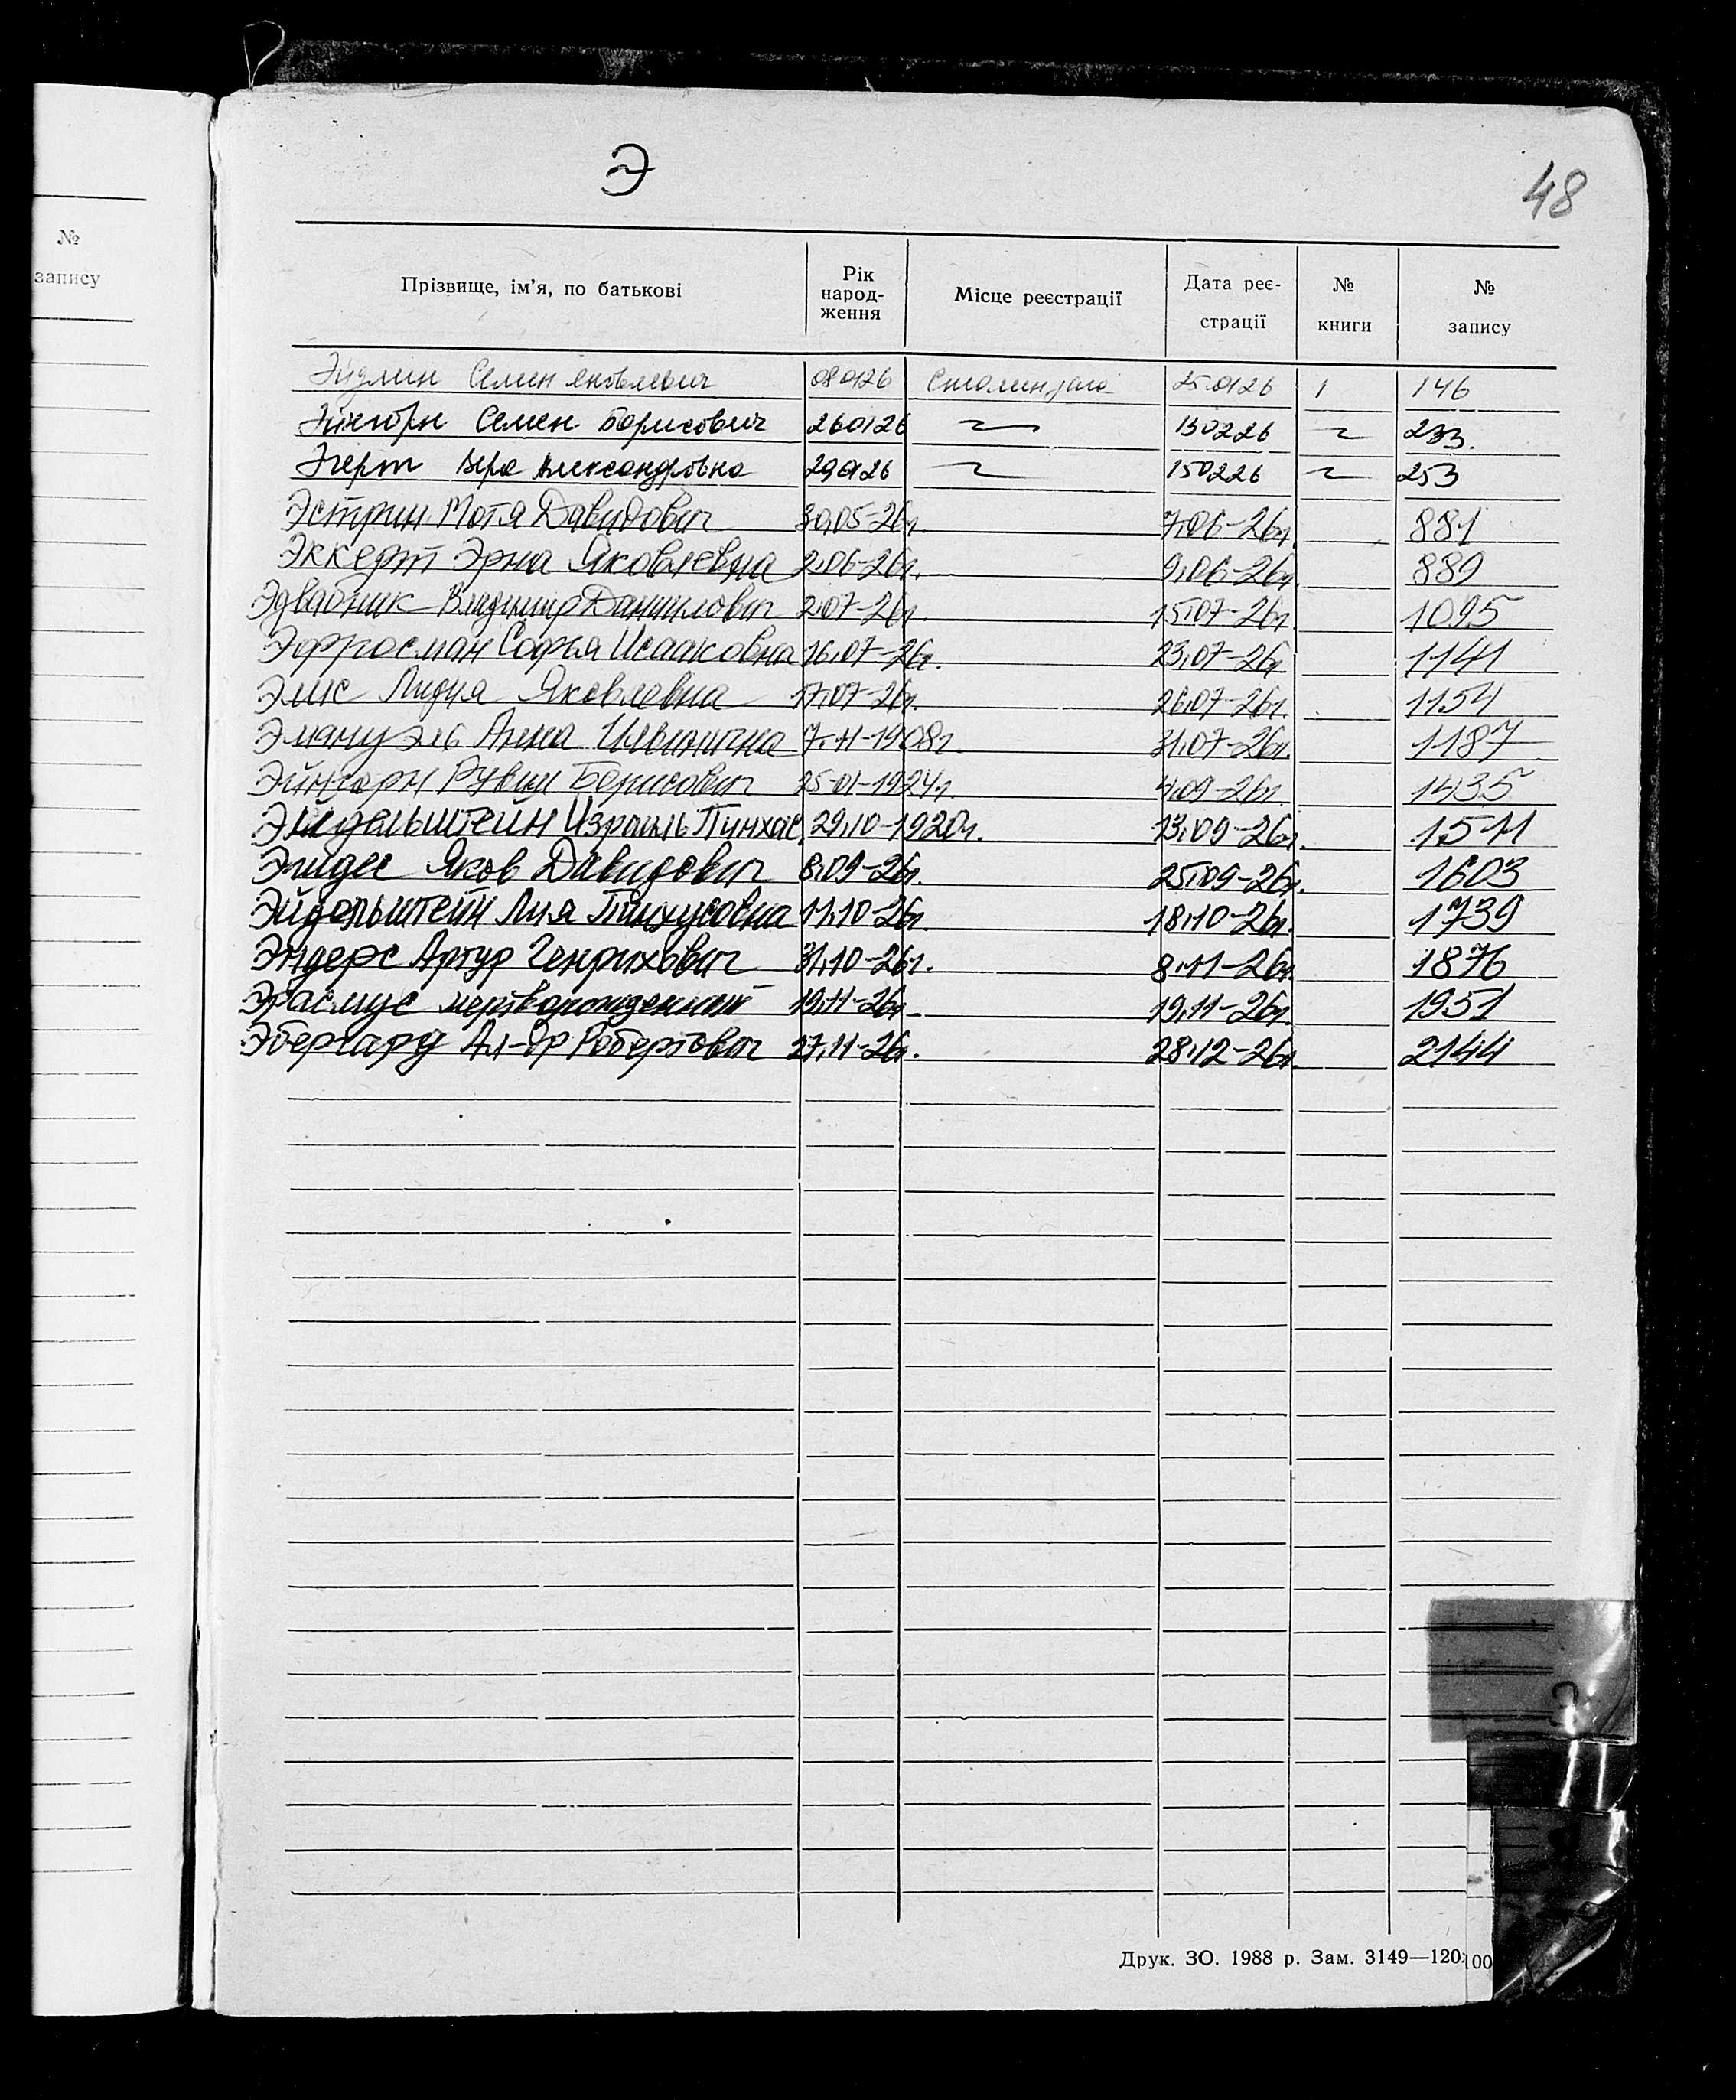 №
запису
Э
48
Прізвище, ім'я, по батькові
Рік народ-ження
Місце реєстрації
Дата реє-страції
№ книги
№ запису
Эйдлин Семен Яковлевич 080126 25.0126 1 146
Эйнгорн Семен Борисович 260126 130226 233.
Эгерт Вера Александровна 290126 150226 253
Эстрин Мотя Давидович 30,05-26г. 7,06-26г. 881
Эккерт Эрна Яковлевна 2,06-26г. 9,06-26г. 889
Эдвабник Владимир Даниилович 2,07-26г. 15,07-26г. 1095
Эфросман Софья Исааковна 16,07-26г. 23,07-26г. 1141
Элис Лидия Яковлевна 17,07-26г. 26,07-26г. 1154
Эмануэль Анна Ильинична 7.11-1908г. 31,07-26г. 1187
Эйнгорн Рувим Борисович 25-01-1924г. 4,09-26г. 1435
Эйдельштейн Израиль Пинхас. 29,10-1920г. 13,09-26г. 1511
Яков Давидович 8,09-26г. 25,09-26г. 1603
Эйдельштейн Лия Пинхусовна 11,10-26г. 18,10-26г. 1739
Эндерс Артур Генрихович 31,10-26г. 8,11-26г. 1876
Эрасмус мертворожденный 19,11-26г. 19,11-26г. 1951
Эбергард Ал-др Робертович 27,11-26г. 28,12-26г. 2144
Друк. ЗО. 1988 р. Зам. 3149—120.